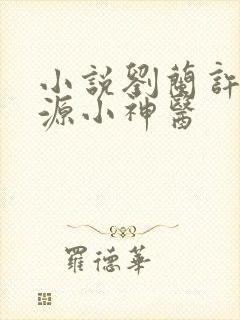 小說劉蘭許
源小神醫
羅德華